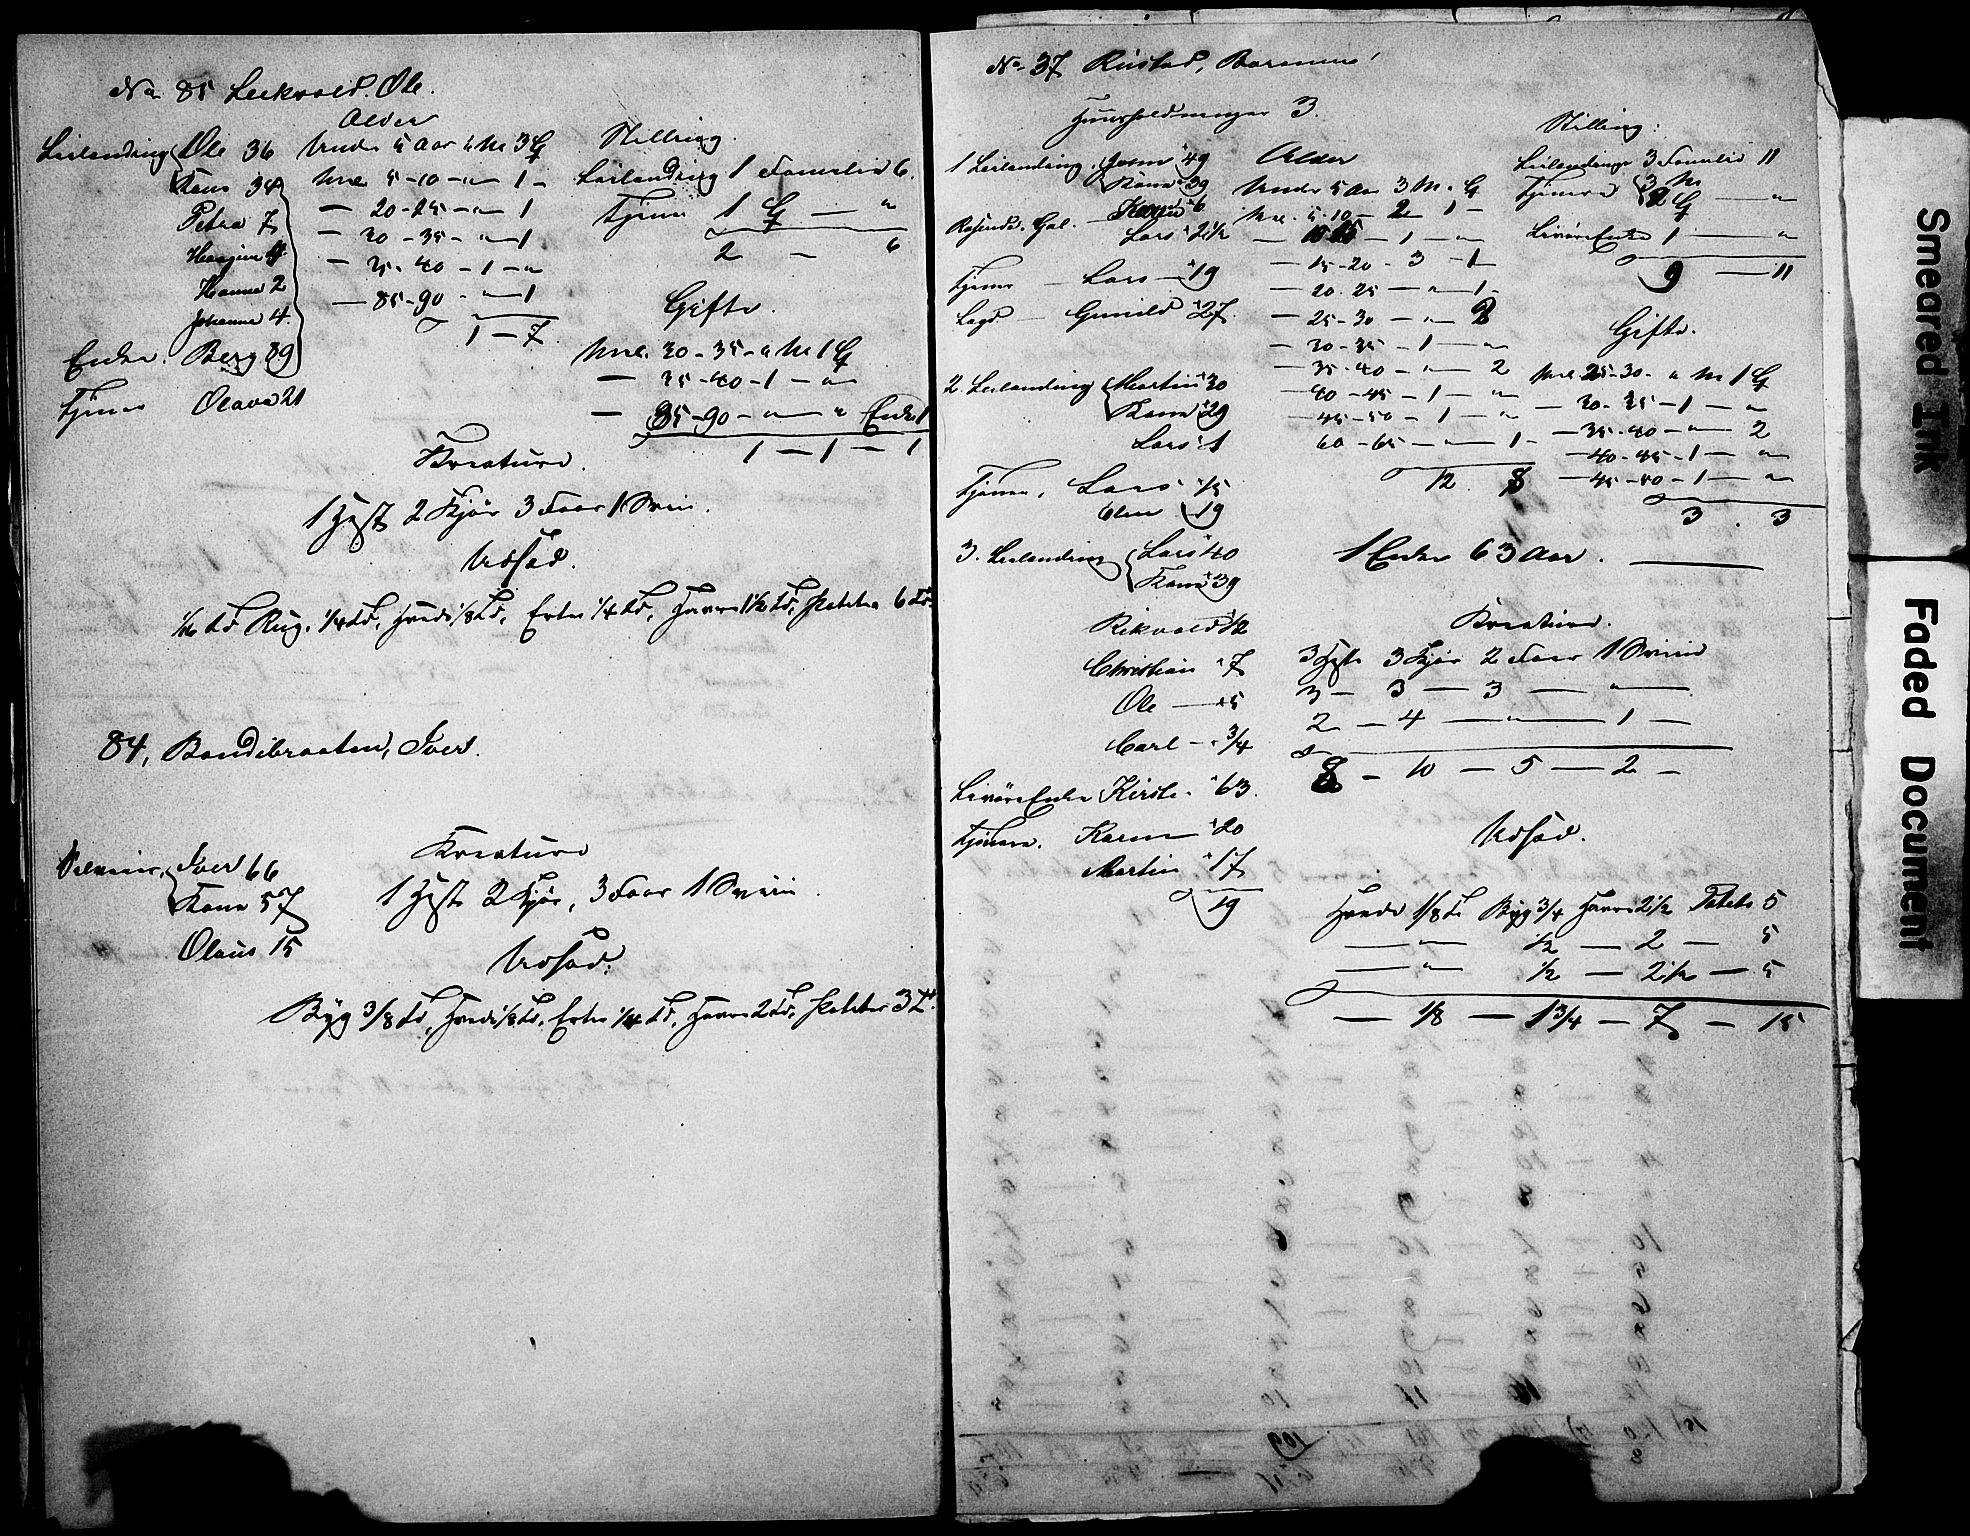 No 85 Leekvold. Ole.
Alder
Leilending Ole 36 Under 5 Aar " M 3 Q
Kone 34 Mel. 5-10 - " - 1 -
Petra 7 — 20-25 - " - 1
— 30-35 - " - 1
Hanna 2 — 35-40 - 1 - "
Johanne 4. — 85-90 - " - 1
1 - 7
Enke. Berg 89
Tjener Olava 21
Stilling.
Leilending 1 Familie 6.
Tjener 1 Q — "
2 - 6
Gifte.
Mel. 30-35 - " M 1 Q
— 35-40 - 1 - "
— 85-90 - " - " Enke 1
1 - 1 - 1
Kreature.
1 Hest 2 Kjør 3 Faar 1 Sviin.
Udsæd.
1/16 Td Rug. 1/4 Td, Hvede 1/8 Td, Erter 1/4 Td, Havre 1 1/2 Td, Poteter 6 Td.
84, Bondibraaten, Iver.
Iver 66
Kone 57
Olaus 15
Kreature
1 Hest 2 Kjør, 3 Faar 1 Sviin.
Udsæd.
Byg 3/8 Td, Hvede 1/8 Td. Erter 1/4 Td, Havre 2 Td, Poteter 3 Td.
No 37 Rustad,
Huusholdninger 3.
1 Leilending. " 49
Kone " 39
" 6
Lars " 2 1/2
Tjener — Lars — " 19
Lagd. — Gunild " 27.
2. Leilending Martin " 30
Kone " 29
Lars " 1
Tjenere, Lars " 15
Elen " 19
3. Leilending Lars " 40
Kone " 39
Rikvald " 12
Christian " 7
Ole — " 5
Carl — " 3/4
Livøre Enke Kirste. " 63.
Tjenere. Karen " 20
Martin " 17
19
Alder
Under 5 Aar 3 M. " Q
Mel. 5-10 - 2 - 1 -
— 10-15 - 1 - "
— 15-20 - 3 - 1
— 20-25 - " - 1 -
— 25-30 - " - 2
— 30-35 - 1 - "
— 35-40 - " - 2
— 40-45 - 1 - "
— 45-50 - 1 - "
60-65 - " - 1 -
12. 8
Stilling:
Leilendinge 3 Familie 11
Tjenere 3 M
2 Q — "
Livøre Enke 1 — "
9 - 11
Gifte.
Mel. 25-30 - " M 1 Q
— 30-35 - 1 - "
— 35-40 - " - 2
— 40-45 - 1 - "
— 45-50 - 1 - "
3. 3
1 Enke 63 Aar.
Kreature.
3 Heste 3 Kjør 2 Faar 1 Sviin
3 — 3 — 3 — "
2 — 4 — " — 1 —
8 - 10 - 5 - 2 -
Udsæd.
Hvede 1/8 Td Byg 3/4 Havre 2 1/2 Poteter 5
— " — 1/2 — 2 — 5
— " — 1/2 — 2 1/2 — 5
— 1/8 — 1 3/4 — 7 — 15
Smeared Ink
Faded Document